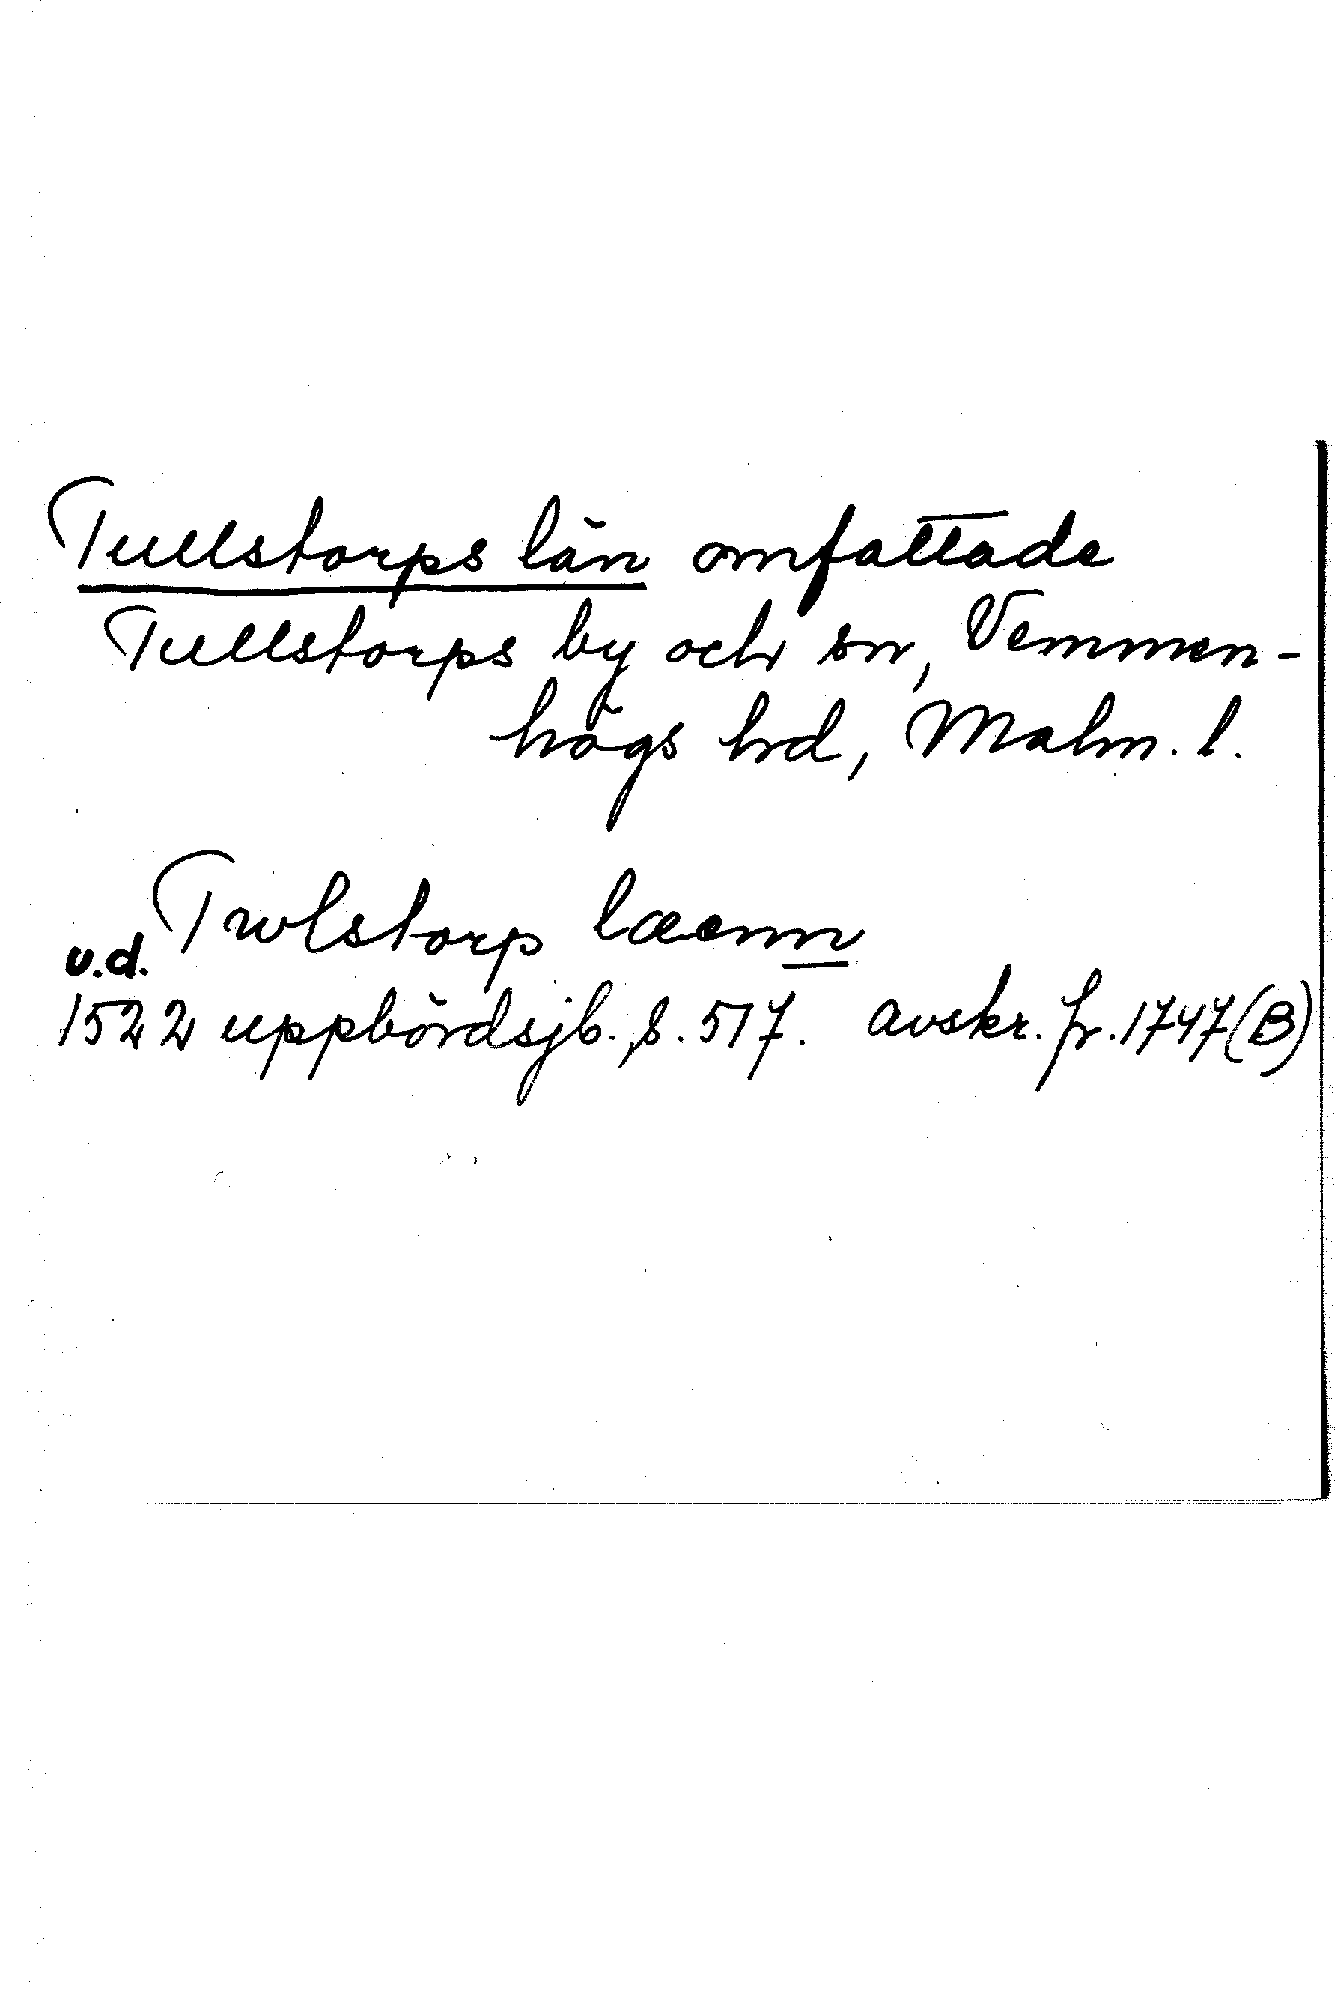 Tullstorps län omfattade
Tullstorps by och sn, Vemmen-
högs hd, Malm. l.
Twlstorp læenn
u.d.
1522 uppbördsjb. s. 517. avskr. fr. 1747 (B)